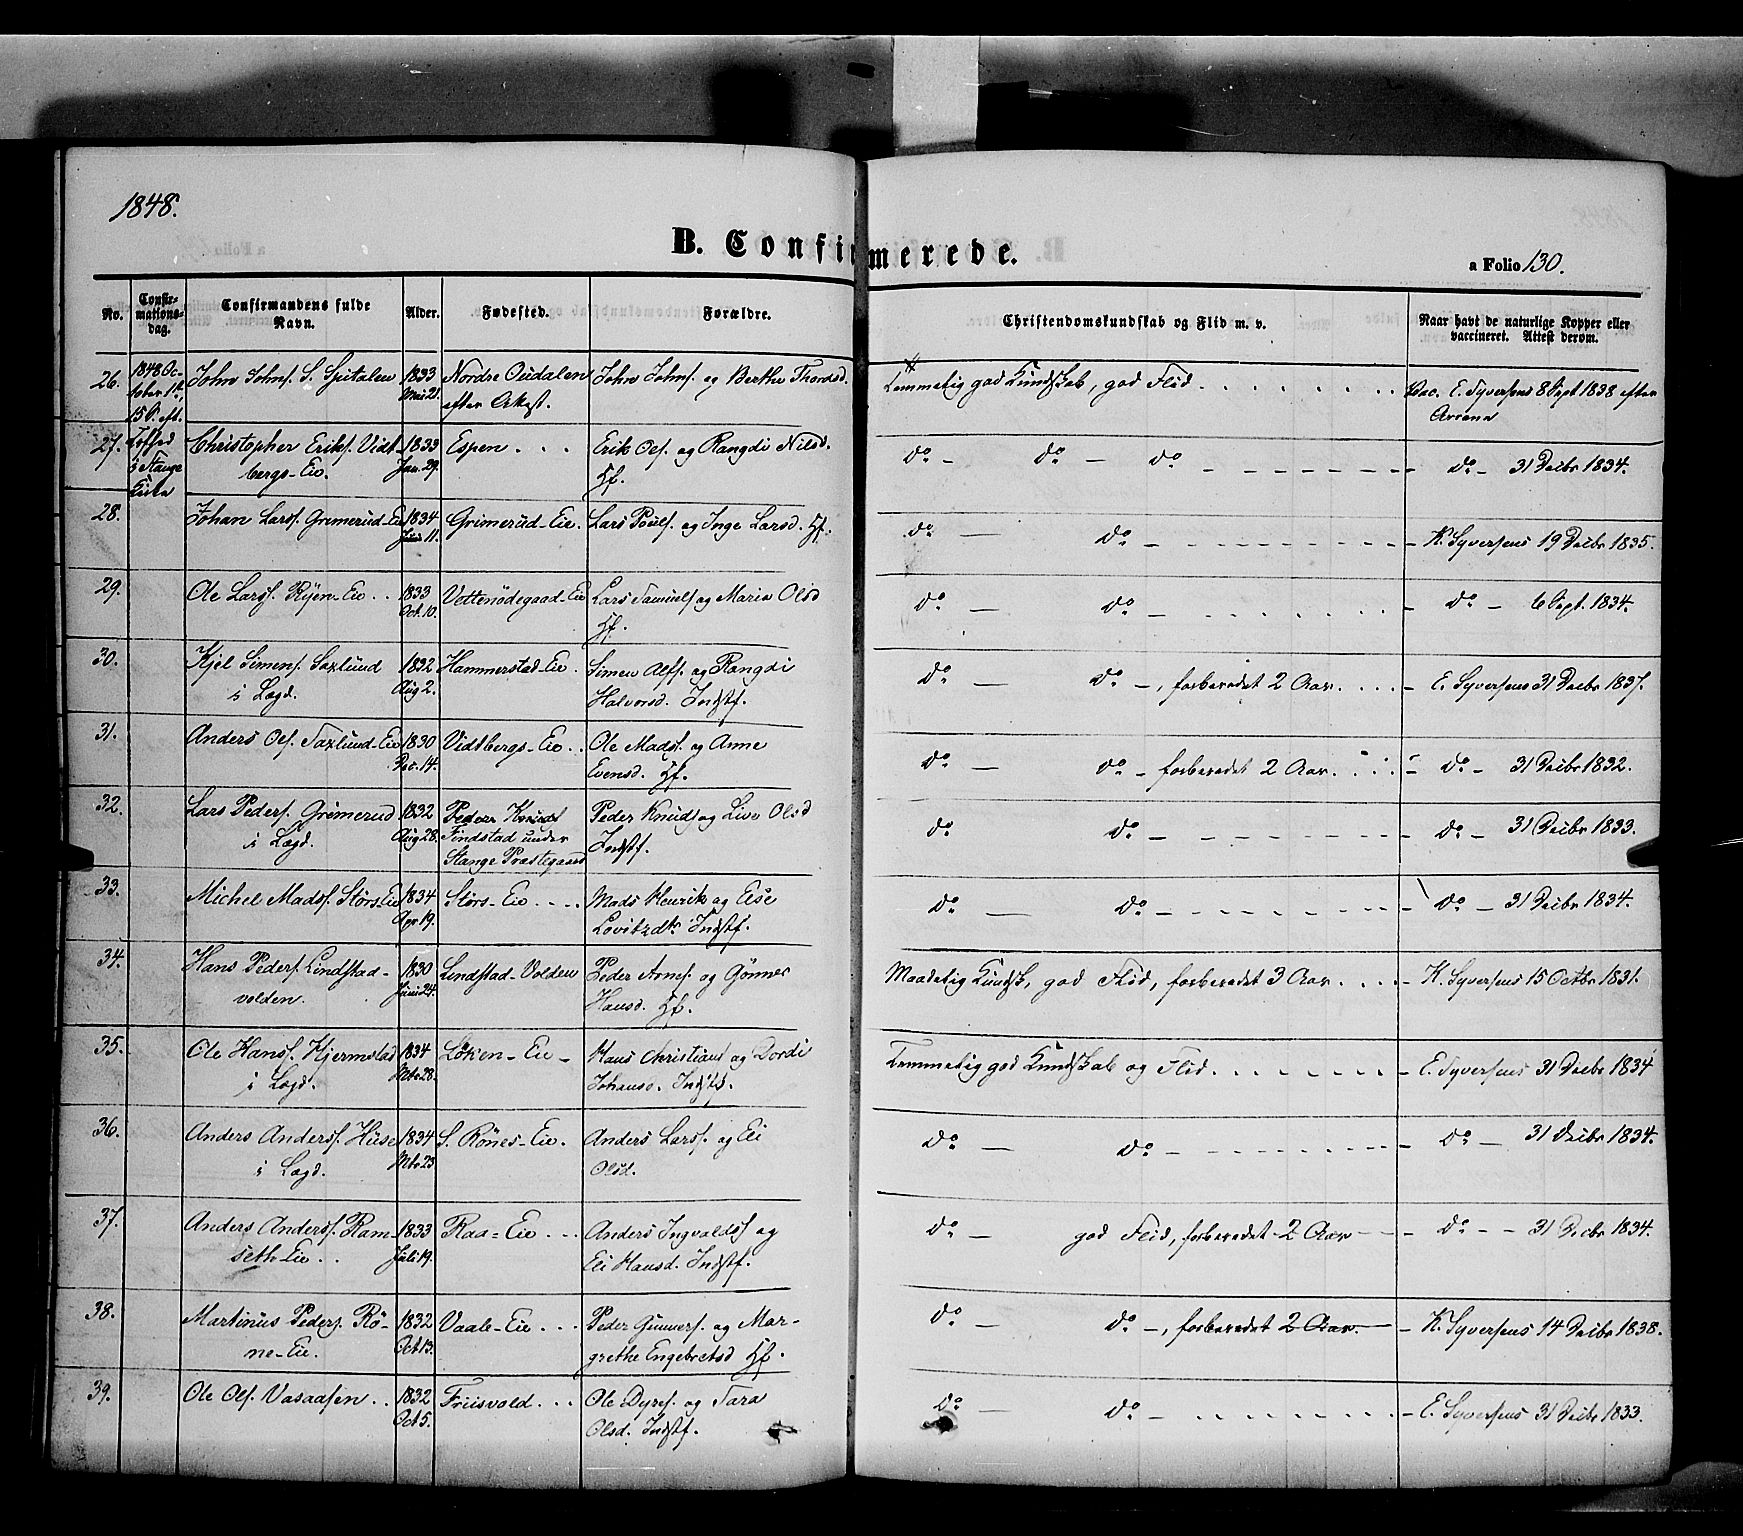 1848.
B. Confirmerede.
a Folio 130.
No.
Confir-
mations-
dag.
Confirmandens fulde
Navn.
Alder.
Fødested.
Forældre.
Christendomskundskab og Flid m. v.
Naar havt de naturlige Kopper eller
vaccineret. Attest derom.
26. 1848 Oc- John Johns. S. Spitalen 1833 Nordre Oudalen John Johns. og Berthe Thordsd. Temmelig god Kundskab, god Flid Vac. E. Syversens 8 Sept 1838 efter
tober 1ste, Mai 21. efter Attest.
15 S. eft.
27. i Stange Christopher Eriks. Vidt- 1833 Espen Erik Ols. og Rangdi Nilsd. do - do - do - do - 31 Decbr 1834.
Kirke bergs-Eie. Jan. 29. Gf.
28. Johan Larss. Grimerud-Eie 1834 Grimerud-Eie Lars Pouls. og Inge Larsd. Gf. do - do - K. Syversens 19 Decbr 1835.
Juni 11.
29. Ole Larss. Ryen-Eie 1833 Vettenødegaard-Eie Lars Samuels og Maria Olsd do - do - do - 6 Sept. 1834.
Oct. 10. Gf.
30. Kjel Simens. Saxlund 1832 Hammerstad-Eie Simen Alfs. og Rangdi do - do -, forberedet 2 Aar. - E. Syversens 31 Decbr 1837.
i Lægd. Aug 2. Halvorsd. Indstf.
31. Anders Ols. Saxlund-Eie 1830 Vidtbergs-Eie Ole Mads. og Anne do - do - forberedet 2 Aar. - do - 31 Decbr 1832.
Dec. 14. Evensd. Gf.
32. Lars Peders. Grimerud 1832 Peder Knuds Peder Knuds og Live Olsd do do - do - 31 Decbr 1833.
i Lægd. Aug 28. Findstad under Indstf.
Stange Præstegaard
33. Michel Madss. Störs-Eie 1834 Störs-Eie Mads Henrik og Else do - do - do - 31 Decbr 1834.
Apr 19. Indstf.
34. Hans Peders. Lindstad- 1830 Lindstad-Volden Peder Arnes. og Gönner Maadelig Kundsk, god Flid, forberedet 3 Aar. - K. Syversens 15 Octbr 1831.
volden. Juni 24. Hansd. Gf.
35. Ole Hanss. Hjermstad 1834 Löken-Eie - Hans Christians og Dordi Temmelig god Kundskab og Flid. - E. Syversens 31 Decbr 1834
i Lægd. Mts 28. Johansd. Indstf.
36. Anders Anderss. Huse 1834 S. Rönes-Eie. Anders Larss. og Eli do - do - do - 31 Decbr 1834.
i Lægd. Mts 23 Olsd.
37. Anders Anderss. Ram- 1833 Raa-Eie Anders Ingvaldss og do - god Flid, forberedet 2 Aar - do - - 31 Decbr 1834.
seth-Eie. Juli 19. Eli Hansd. Indstf.
38. Martinus Peders. Rö- 1832 Vaale-Eie Peder Gunners. og Mar- do - do -, forberedet 2 Aar. - K. Syversens 14 Decbr 1838.
ne-Eie. Oct 13. grethe Engebretsd Gf.
39. Ole Ols. Vasaasen 1832 Friisvold Ole Dyres. og Sara do - do - - E. Syversens 31 Decbr 1833.
Oct 5. Olsd. Indstf.